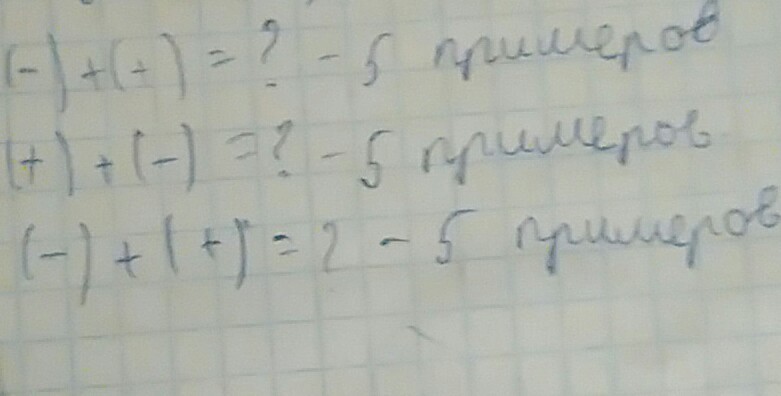 (-) + (+) = ? - 5 примеров
(+) + (-) = ? - 5 примеров
(-) + (+) = ? - 5 примеров